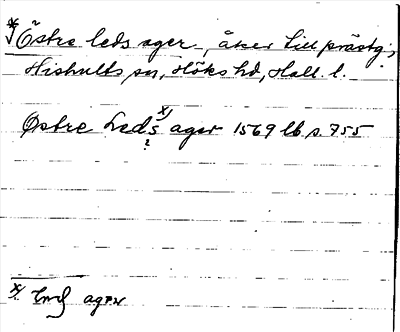 *† Östre leds ager, åker till prästg.,
Hishults sn, Höks hd, Hall. l.
Østre Leds x) ager 1569 lb s. 755
?
x/ ager